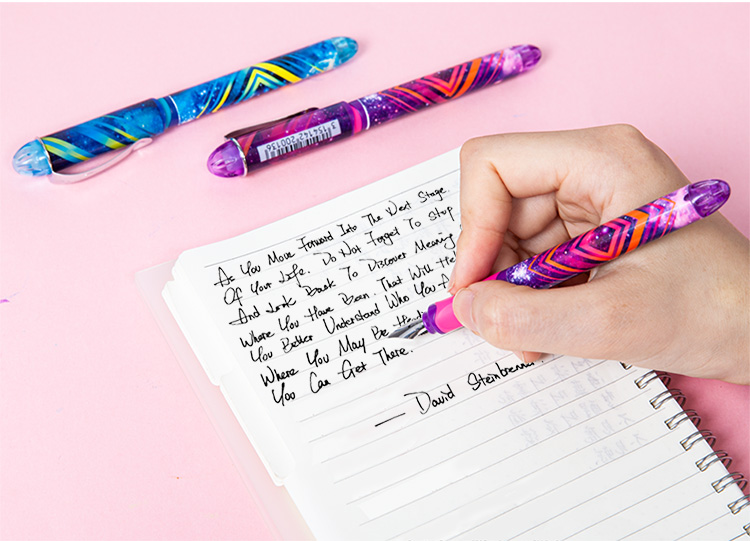 3 154142 200136
As You Move Forward Into The Next Stage.
Of Your Life. Do Not Forget To Stop
And Look Back To Discover Meaning
Where You Have Been. That Will Hel
You Better Understand Who You A
Where You May Be
You Can Get There.
— David Steinbrenn